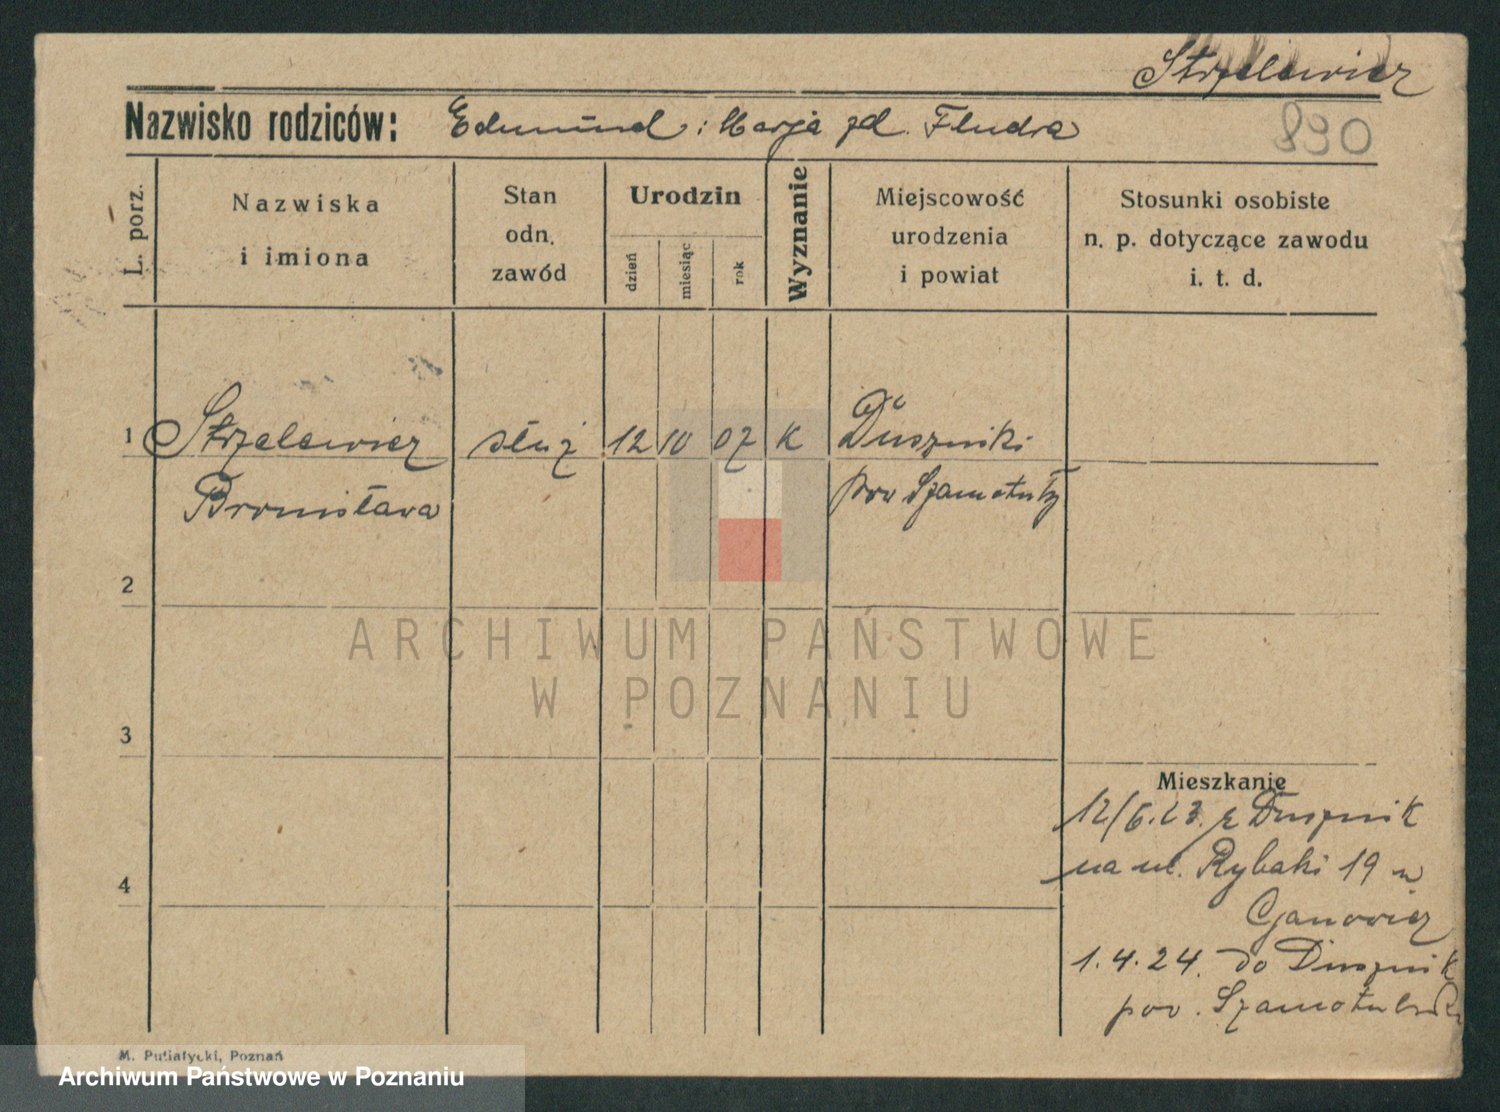 Strzelewicz
Nazwisko rodziców: Edmund i Marja zd. Fludra
890
L. porz.
Nazwiska
i imiona
Stan
odn.
zawód
Urodzin
dzień
miesiąc
rok
Wyznanie
Miejscowość
urodzenia
i powiat
Stosunki osobiste
n. p. dotyczące zawodu
i. t. d.
1 Strzelewicz służ 12 10 07 K Duszniki
Bronisława pow Szamotuły
2
ARCHIWUM PAŃSTWOWE
W POZNANIU
3
Mieszkanie
12/6.23. z Dusznik
4
na ul. Rybaki 19
1.4.24. do Dusznik
pow. Szamotulski
M. Putiatycki, Poznań
Archiwum Państwowe w Poznaniu